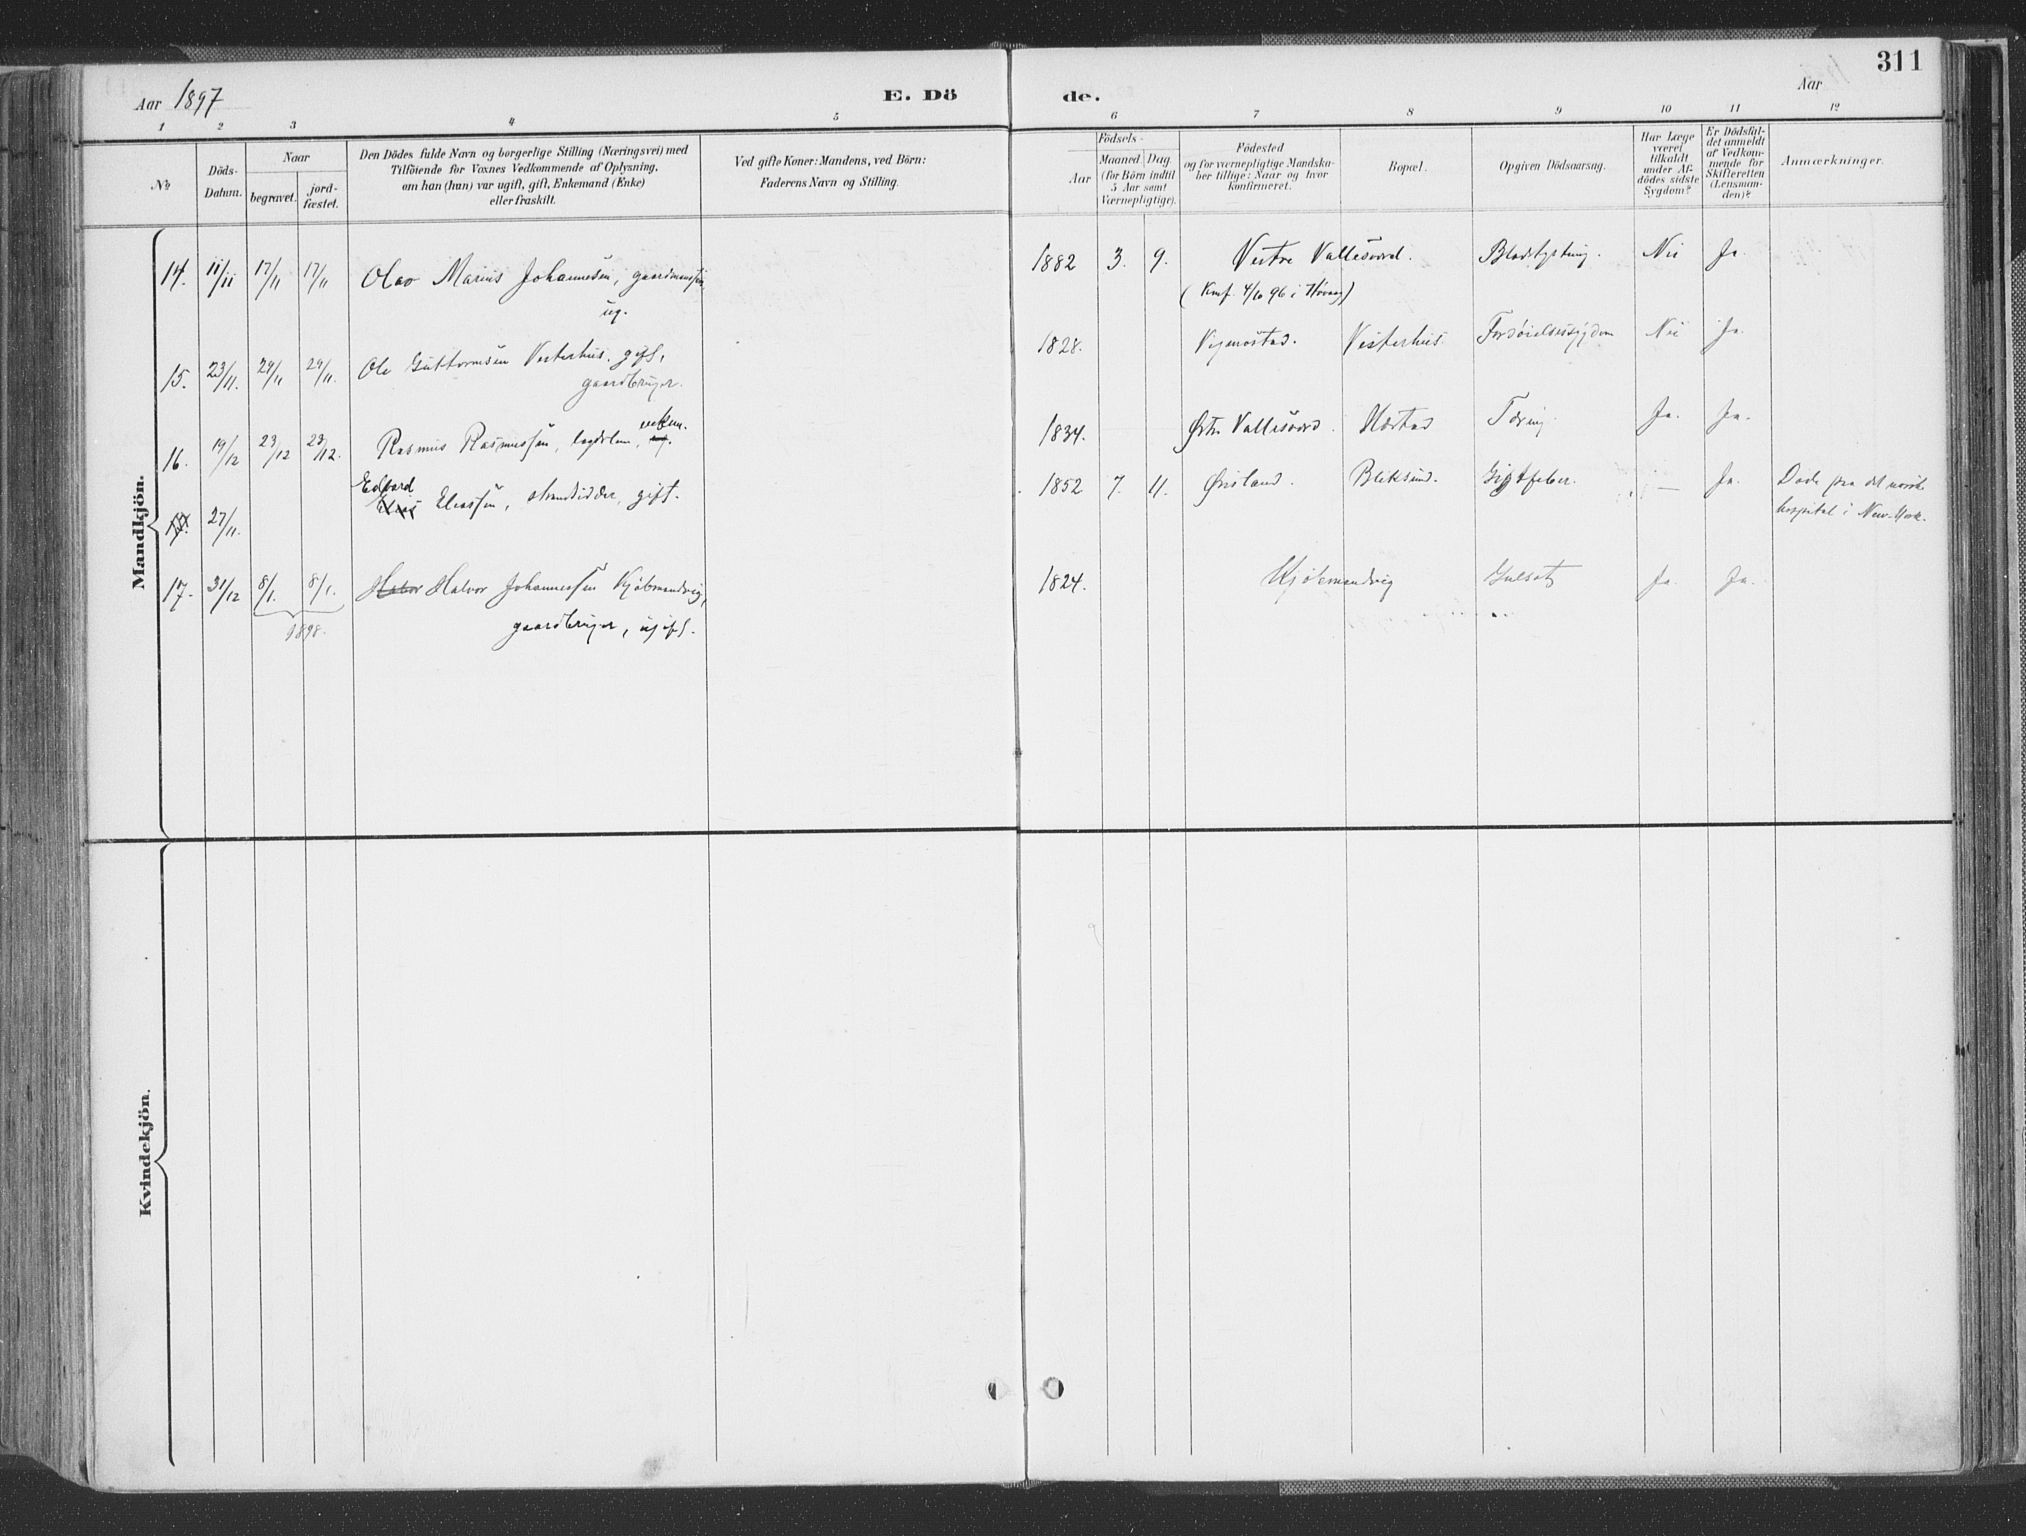 311
Aar 1897 E. Döde. Aar
1 2 3 4 5 6 7 8 9 10 11 12
No
Döds-Datum.
Naar
begravet.
jord-fæstet.
Den Dödes fulde Navn og borgerlige Stilling (Næringsvei) med
Tilföiende for Voxnes Vedkommende af Oplysning,
om han (hun) var ugift, gift, Enkemand (Enke)
eller fraskilt.
Ved gifte Koner: Mandens, ved Börn:
Faderens Navn og Stilling.
Födsels-
Aar
Maaned. Dag.
(for Börn indtil
5 Aar samt
Værnepligtige).
Födested
og for værnepligtige Mandska-
ber tillige: Naar og hvor
Konfirmeret.
Bopæl.
Opgiven Dödsaarsag.
Har Læge
været
tilkaldt
under Af-
dödes sidste
Sygdom?
Er Dödsfal-
det anmeldt
af Vedkom-
mende for
Skifteretten
(Lensman-
den)?
Anmærkninger.
Mandkjön.
14. 11/11 17/11 17/11 Olav Marius Johannesen, 1882 3. 9. Vestre Vallesværd. Nei Ja.
ug. (Kmf. 4/10 96 i Høvaag)
15. 23/11. 29/11 29/11. Ole Guttormsen Vesterhus. gift, 1828. Vigmostad. Vesterhus. Nei Ja.
gaardbruger.
16. 19/12 23/12 23/12. Rasmus Rasmussen, lægdslem, 1834. Østre Vallesværd. Hæstad Tæring Ja. Ja.
Edvard
17. 27/11. Elias Eliassen, strandsidder, gift. 1852 7. 11. Øisland. Bliksund. Giftfeber. — Ja. Døde paa det norske
hospital i New-York.
17. 31/12 8/1. 8/1. Halvor Johannessen Kjøbmandvig, 1824. Kjøbmandvig Gulsot Ja. Ja.
1898. gaardbruger, ugift.
Kvindekjön.